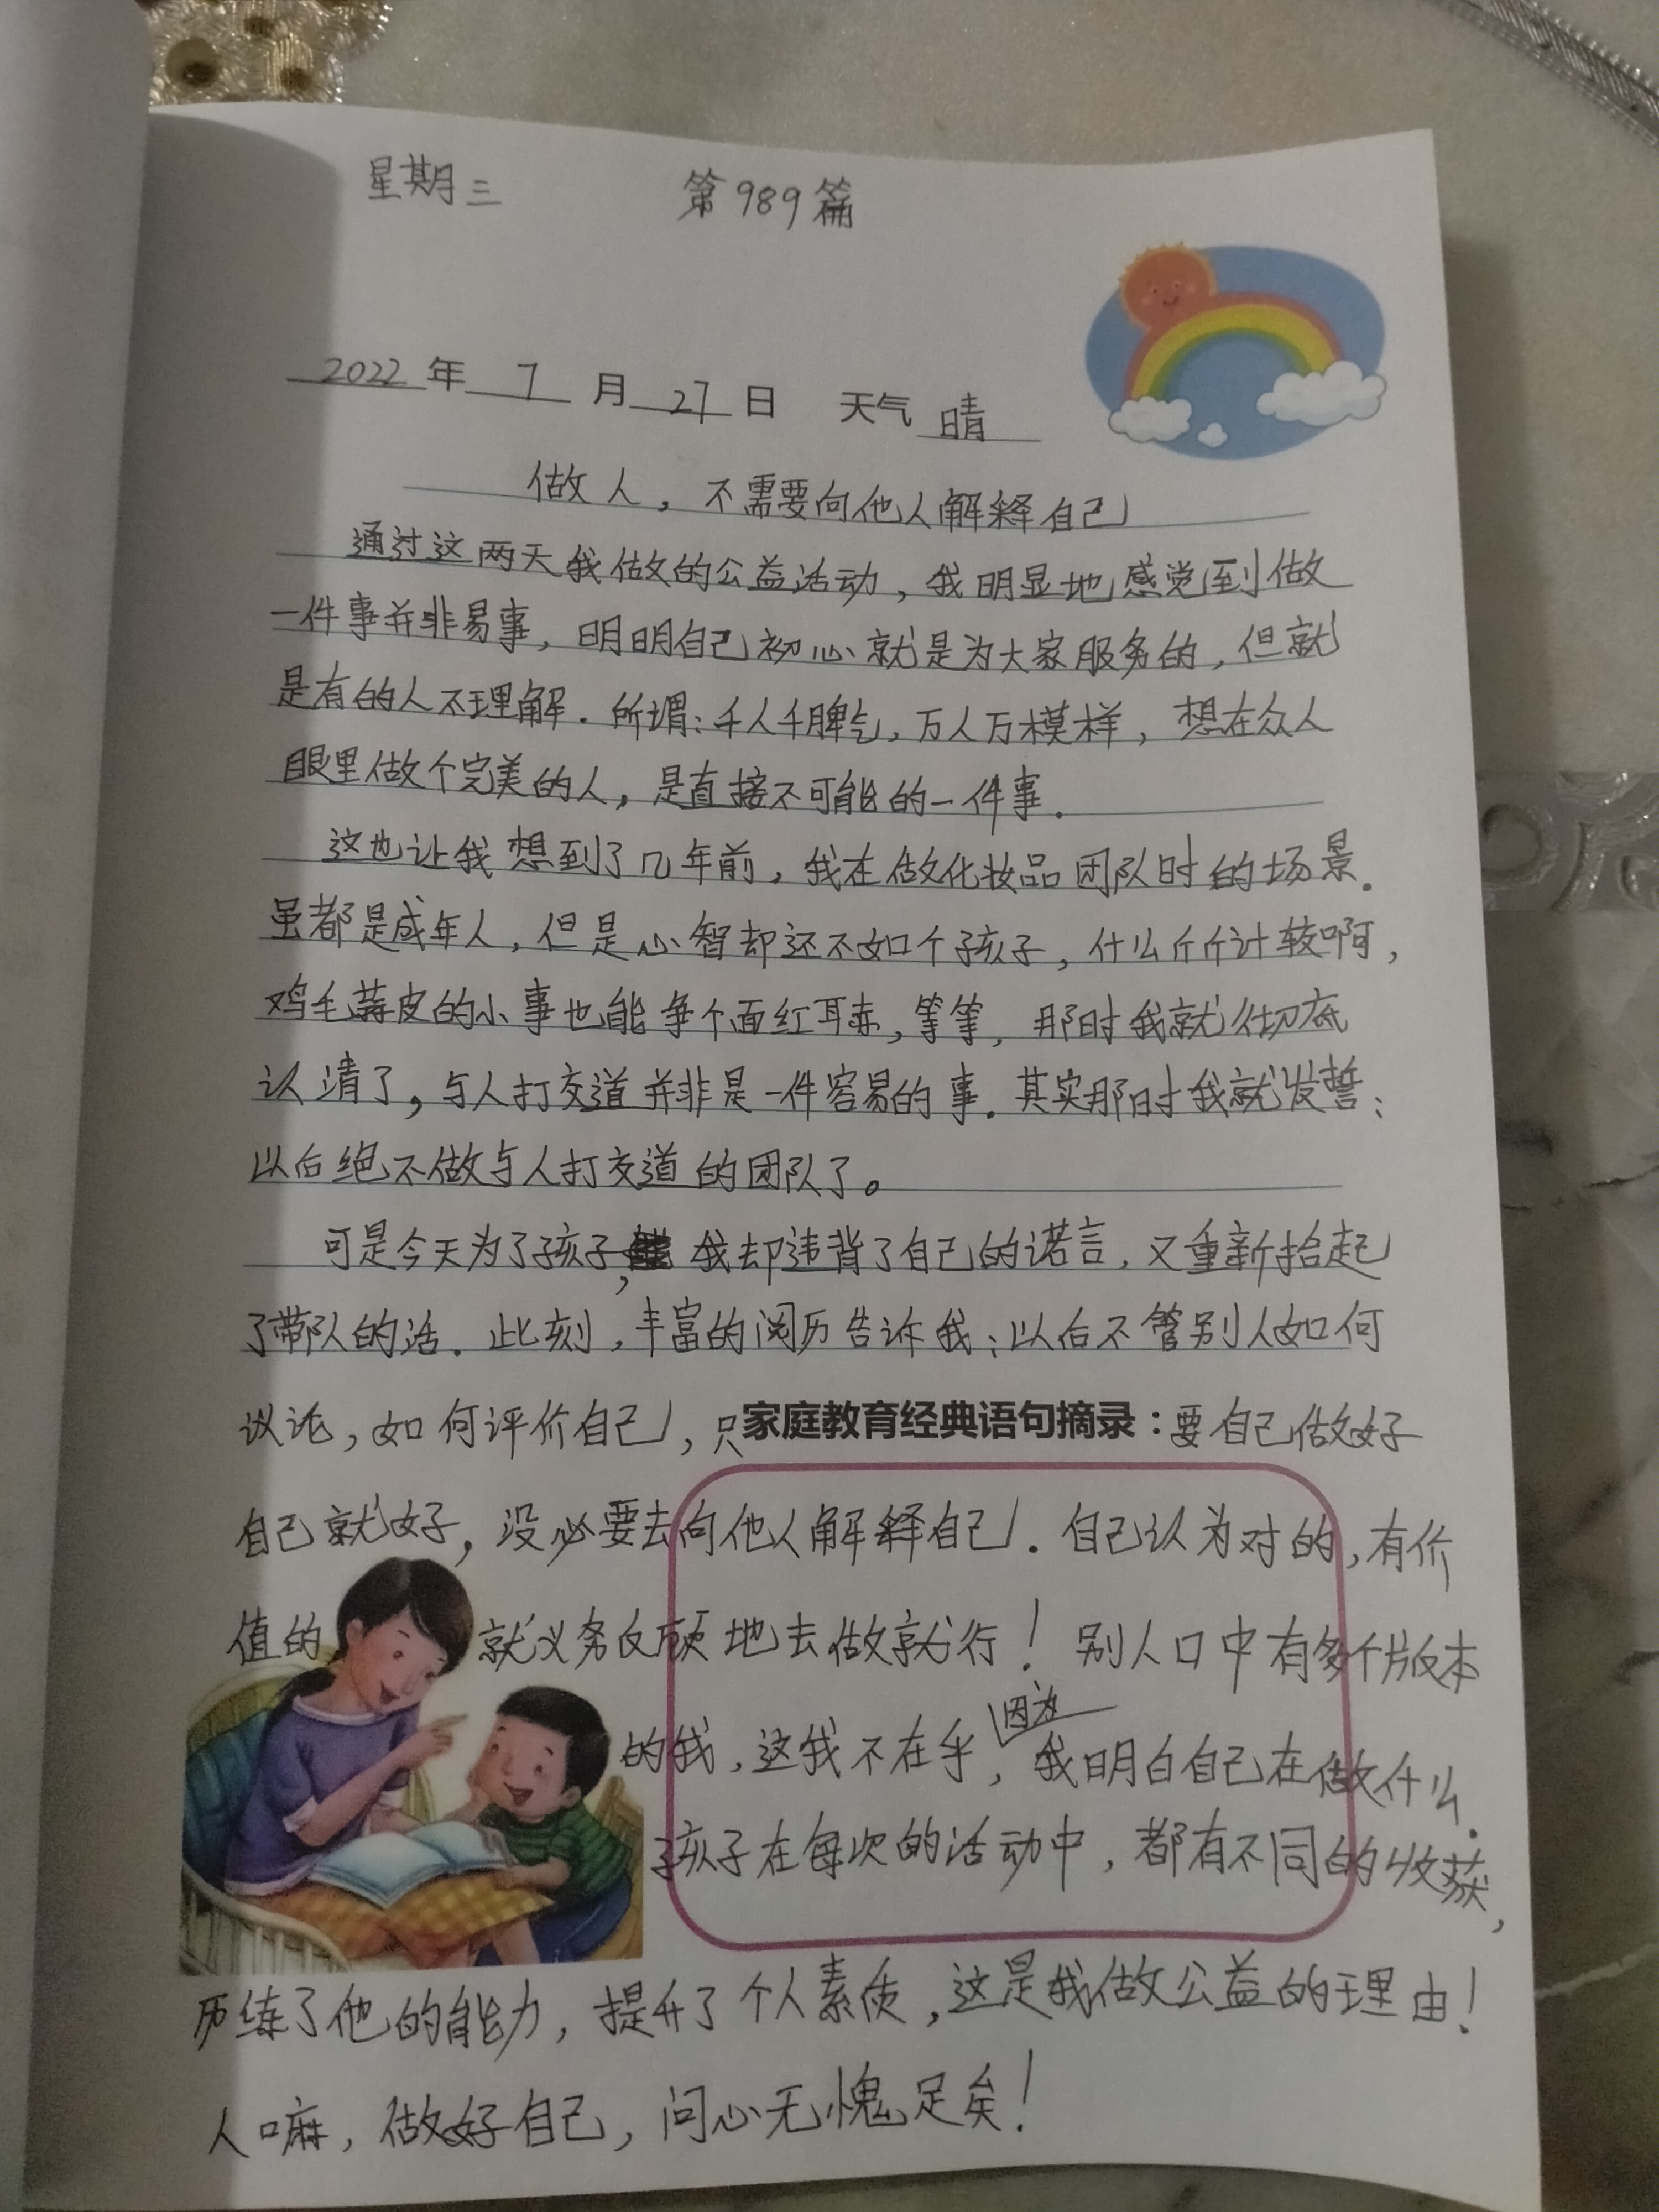 星期三 第989篇
2022年 7 月 27 日 天气 晴
做人，不需要向他人解释自己
通过这两天我做的公益活动，我明显地感觉到做
一件事并非易事，明明自己初心就是为大家服务的，但就
是有的人不理解．所谓：千人千脾气，万人万模样，想在众人
眼里做个完美的人，是直接不可能的一件事．
这也让我想到了几年前，我在做化妆品团队时的场景．
虽都是成年人，但是心智却还不如个孩子，什么斤斤计较啊，
鸡毛蒜皮的小事也能争个面红耳赤，等等，那时我就彻底
认清了，与人打交道并非是一件容易的事．其实那时我就发誓：
以后绝不做与人打交道的团队了。
可是今天为了孩子，我却违背了自己的诺言，又重新拾起
了带队的活．此刻，丰富的阅历告诉我：以后不管别人如何
议论，如何评价自己，只家庭教育经典语句摘录：要自己做好
自己就好，没必要去向他人解释自己．自己认为对的，有价
值的就义务反顾地去做就行！别人口中有多个版本
的我，这我不在乎，因为我明白自己在做什么．
孩子在每次的活动中，都有不同的收获，
历练了他的能力，提升了个人素质，这是我做公益的理由！
人嘛，做好自己，问心无愧足矣！